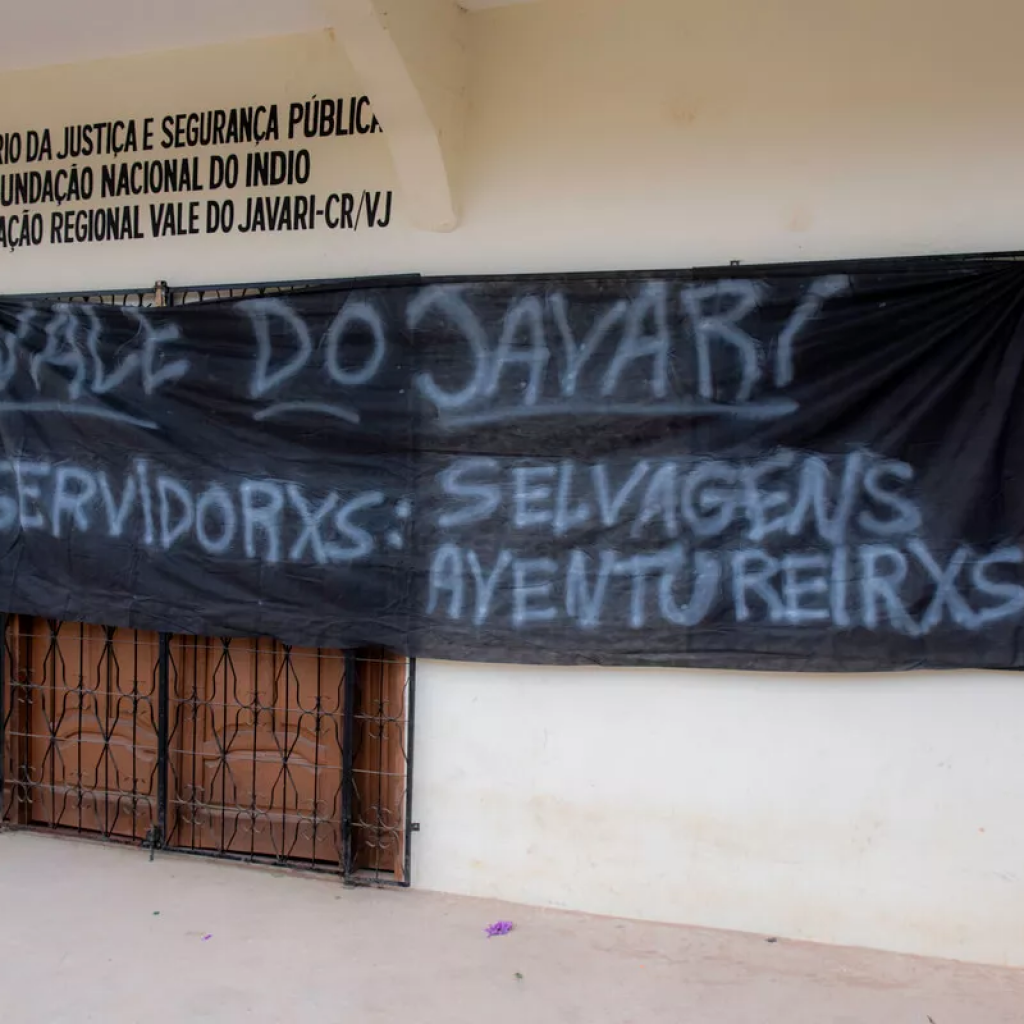 RIO DA JUSTIÇA E SEGURANÇA PÚBLICA
UNDAÇÃO NACIONAL DO INDIO
AÇÃO REGIONAL VALE DO JAVARI-CR/VJ
VALE DO JAVARI
SERVIDORXS: SELVAGENS
AVENTUREIRXS